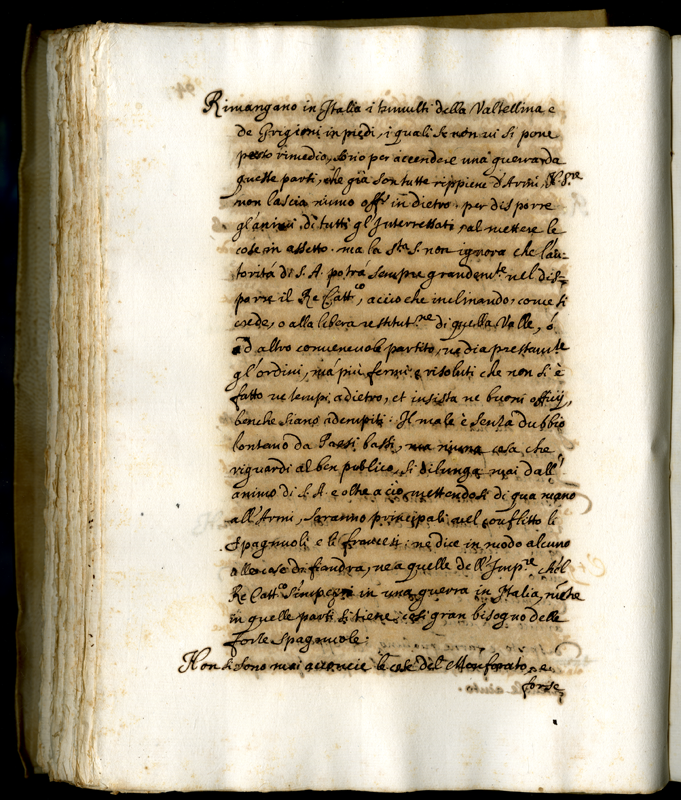 Rimangano in Italia i tumulti della Valtellina e
de Grigioni in piedi, i quali se non vi si pone
presto rimedio, sono per accendere una guerra da
queste parti, che già son tutte rippiene d'Armi, N. Sre
non lascia niuno offo in dietro per disporre
gl'animi di tutti gl'Interressati, al mettere le
cose in assetto. ma la Sta S. non ignora che l'au-
torità di S. A. potrà sempre grandemte nel dis-
porre il Re Cattco, acciò che inclinando, come si
crede, o alla libera restitutne di quella Valle, ó
ad altro convenevole partito, ne dia prestamte
gl'ordini, má più fermi e risoluti che non si è
fatto ne tempi adietro, et insista ne buoni officij,
benche siano adempiti: Il male è senza dubbio
lontano da Paesi bassi, ma niuna cosa che
riguardi al ben publico, si dilunga mai dall'
animo di S. A. e oltre a ciò mettendosi di qua mano
all'Armi, saranno principali nel conflitto li
Spagnuoli e li francesi: ne dice in modo alcuno
alle cose di fiandra, ne a quelle dell'Impre ch'il
Re Cattco s'impegni in una guerra in Italia, mentre
in quelle parti si tiene così gran bisogno delle
forze Spagnuole:
Non si sono mai acconcie le cose del Monferato, e
forse